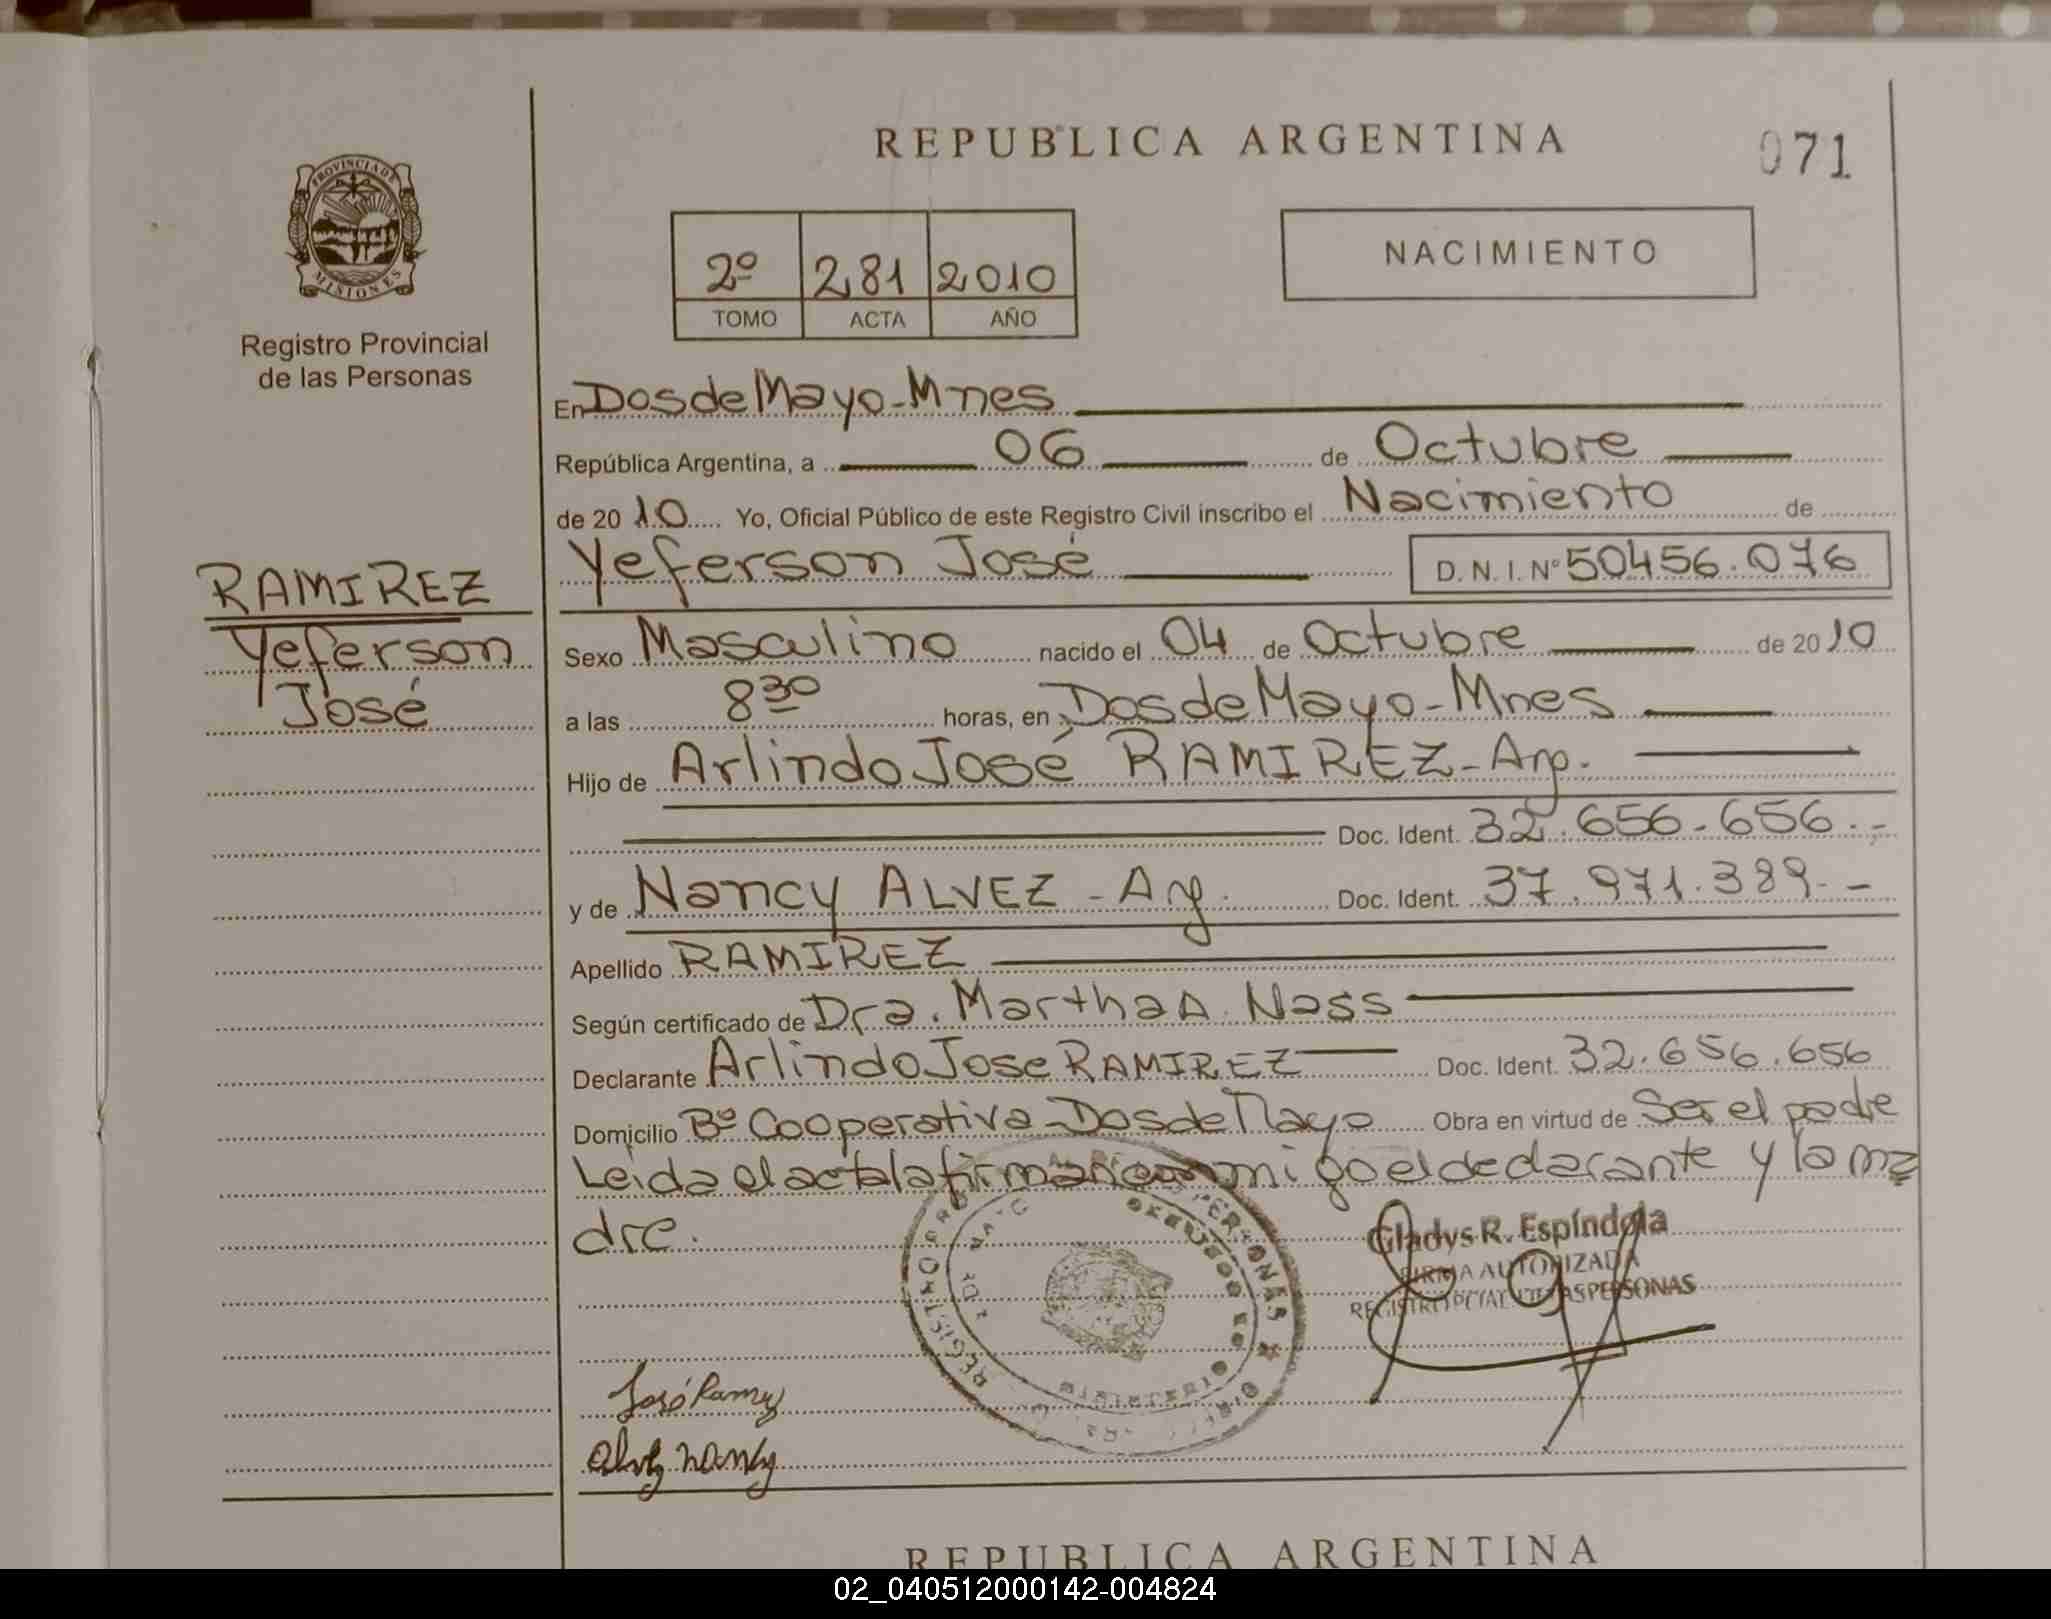 REPUBLICA ARGENTINA
071
PROVINCIA DE
MISIONES
Registro Provincial
de las Personas
2º 281 2010
TOMO ACTA AÑO
NACIMIENTO
En Dos de Mayo-Mnes
República Argentina, a 06 de Octubre
de 2010 Yo, Oficial Público de este Registro Civil inscribo el Nacimiento de
Yeferson José D.N.I.Nº 50456.076
RAMIREZ
Yeferson
José
Sexo Masculino nacido el 04 de Octubre de 2010
a las 8 30 horas, en Dos de Mayo-Mnes
Hijo de Arlindo José RAMIREZ-Arg.
Doc. Ident. 32.656.656.-
y de Nancy ALVEZ - Arg. Doc. Ident. 37.971.389.-
Apellido RAMIREZ
Según certificado de Dra. Martha A. Nass
Declarante Arlindo Jose RAMIREZ Doc. Ident. 32.656.656
Domicilio Bº Cooperativa-Dos de Mayo Obra en virtud de Ser el padre
Leida el acta la firman conmigo el declarante y la ma
dre.
Gladys R. Espíndola
FIRMA AUTORIZADA
REGISTRO PCIAL DE LAS PERSONAS
José Ramrez
Alvez Nancy
REPUBLICA ARGENTINA
02_040512000142-004824